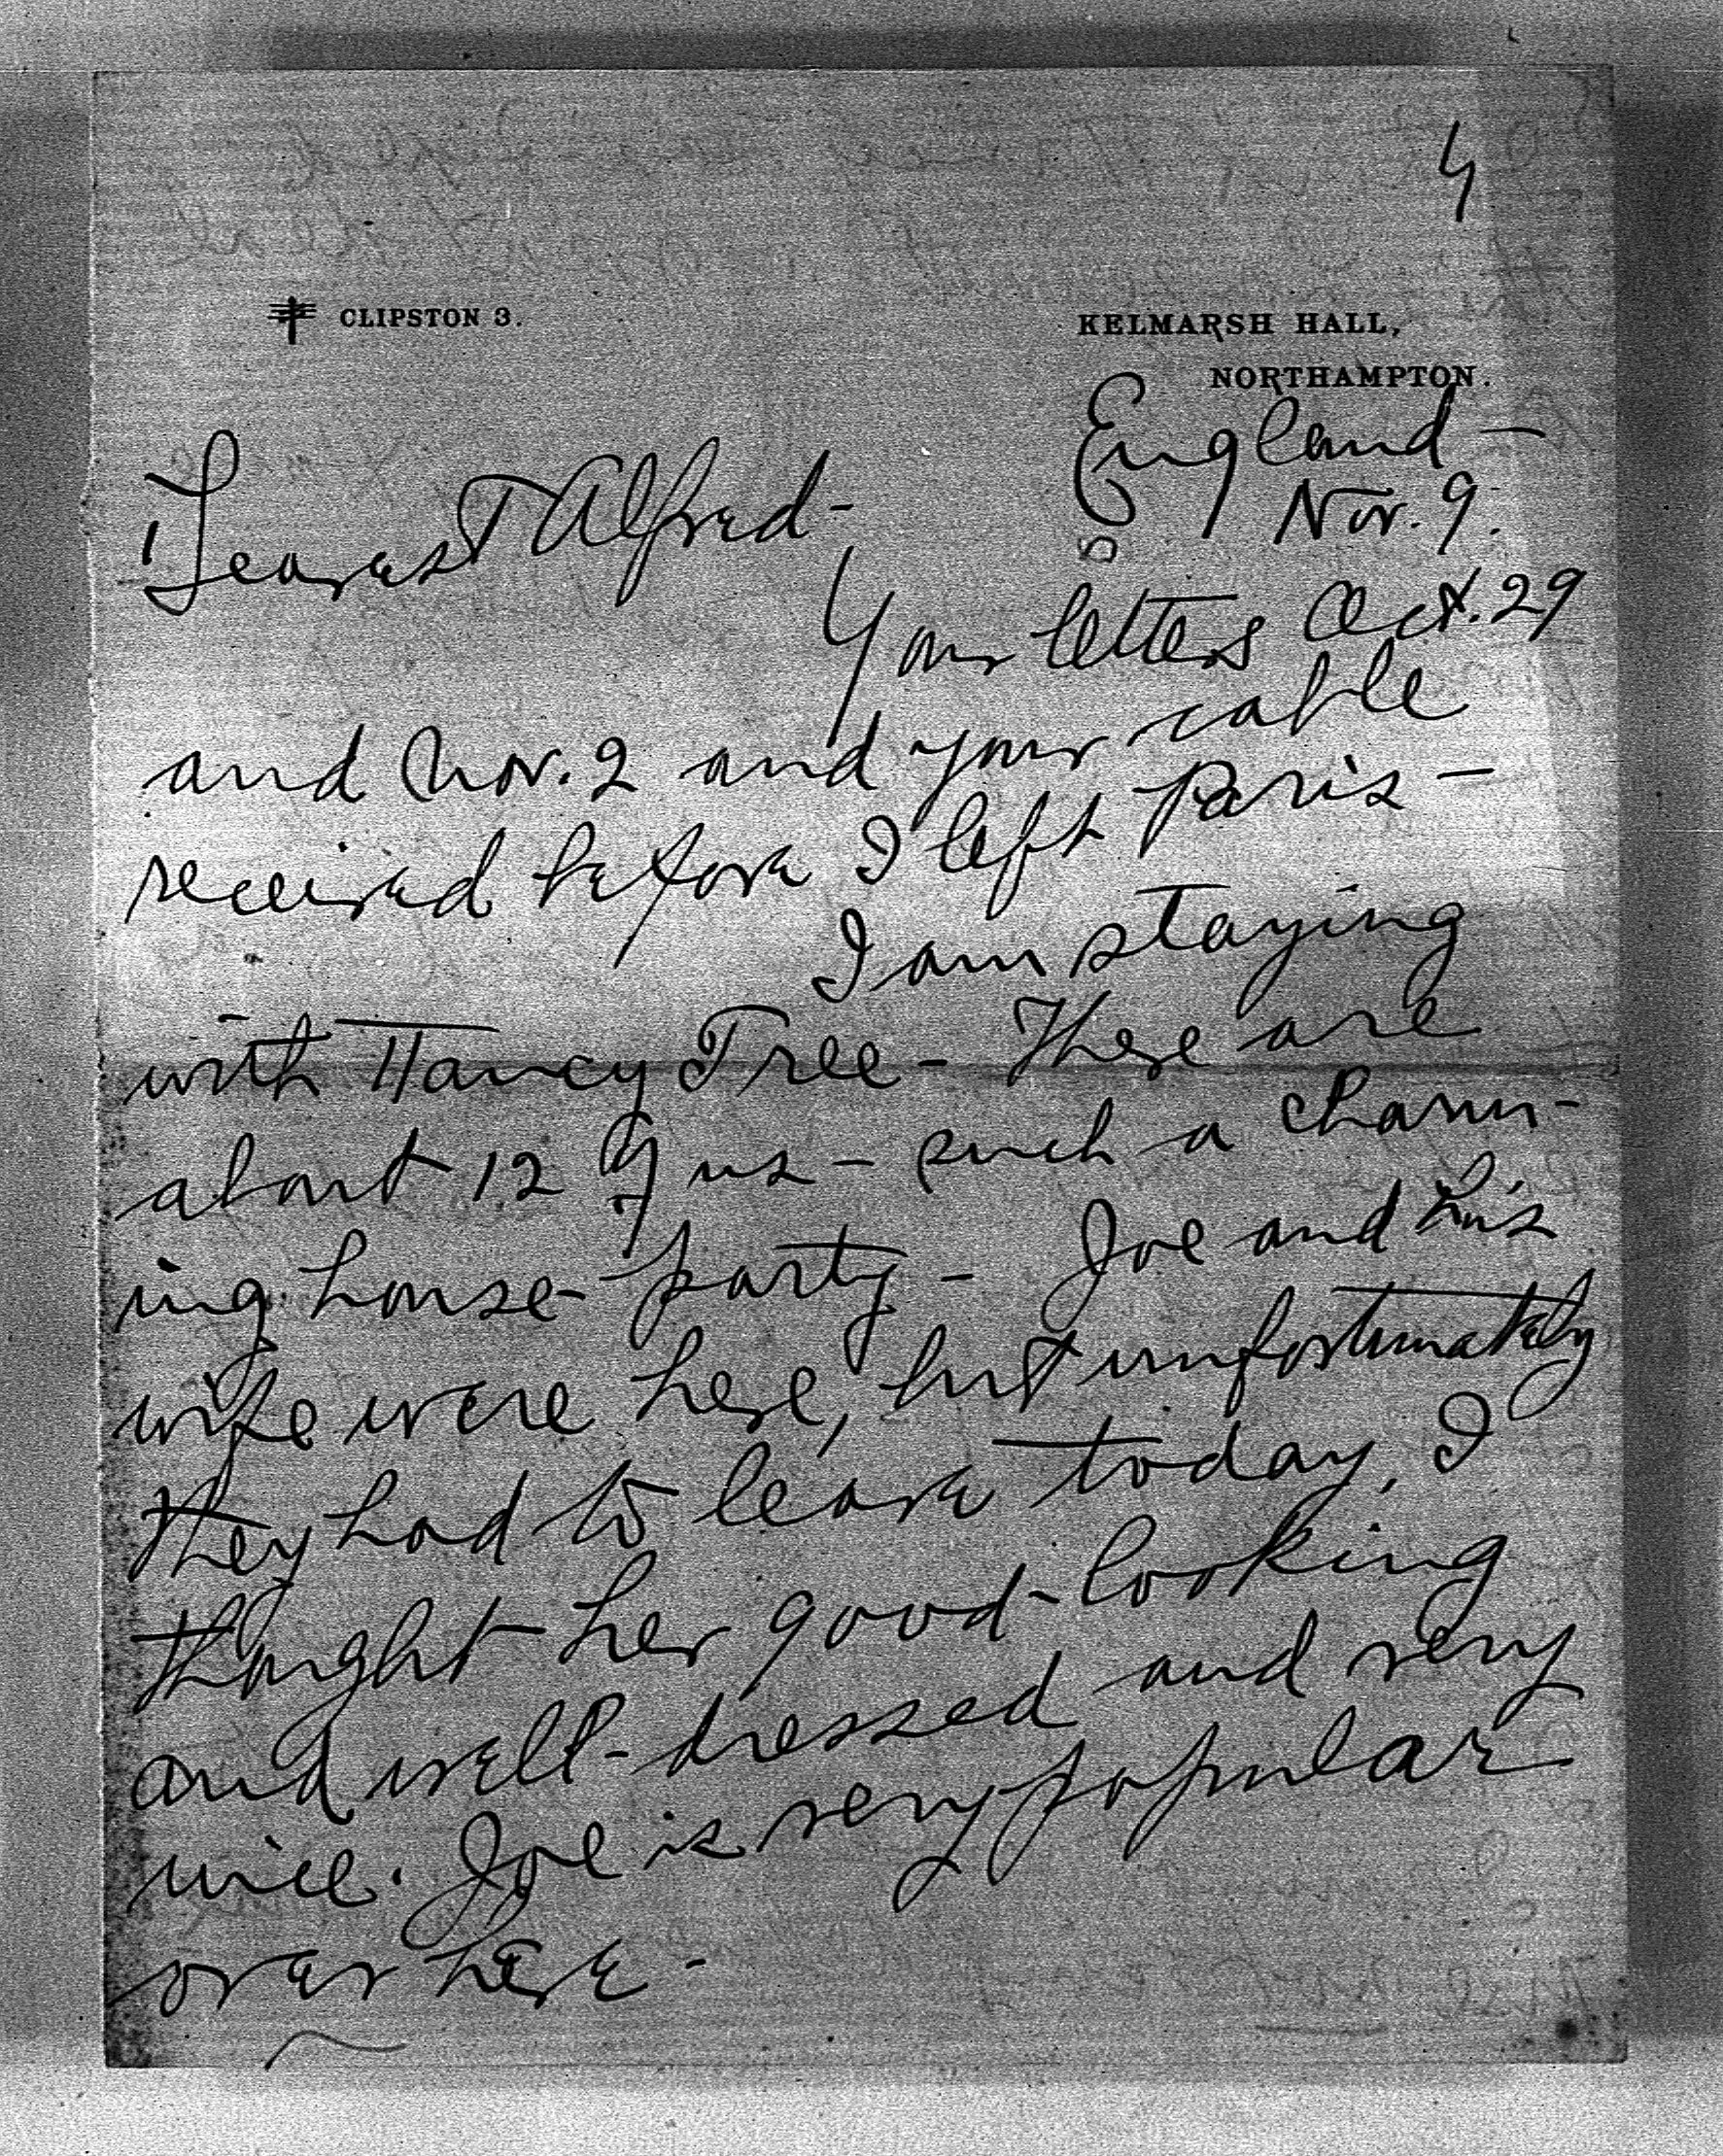 4
CLIPSTON 3.
KELMARSH HALL,
NORTHAMPTON.
England —
Nov. 9.
Dearest Alfred -
Your letters Oct. 29
and Nov. 2 and your cable
received before I left Paris —
I am staying
with Nancy Tree - There are
about 12 of us - such a charm-
ing house-party - Joe and his
wife were here, but unfortunately
they had to leave today, I
thought her good-looking
and well-dressed and very
nice. Joe is very popular
over here -